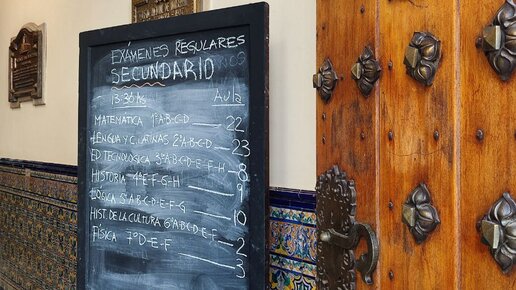 EXÁMENES REGULARES
SECUNDARIO
13:30 hs Aula
MATEMÁTICA 1º A-B-C-D 22
LENGUA Y C. LATINAS 2º A-B-C-D 23
ED. TECNOLÓGICA 3º A-B-C-D-E-F-H 8
HISTORIA 4º E-F-G-H 9
LÓGICA 5º A-B-C-D-E-F-G 10
HIST. DE LA CULTURA 6º A-B-C-D-E-F 2
FÍSICA 1º D-E-F 3